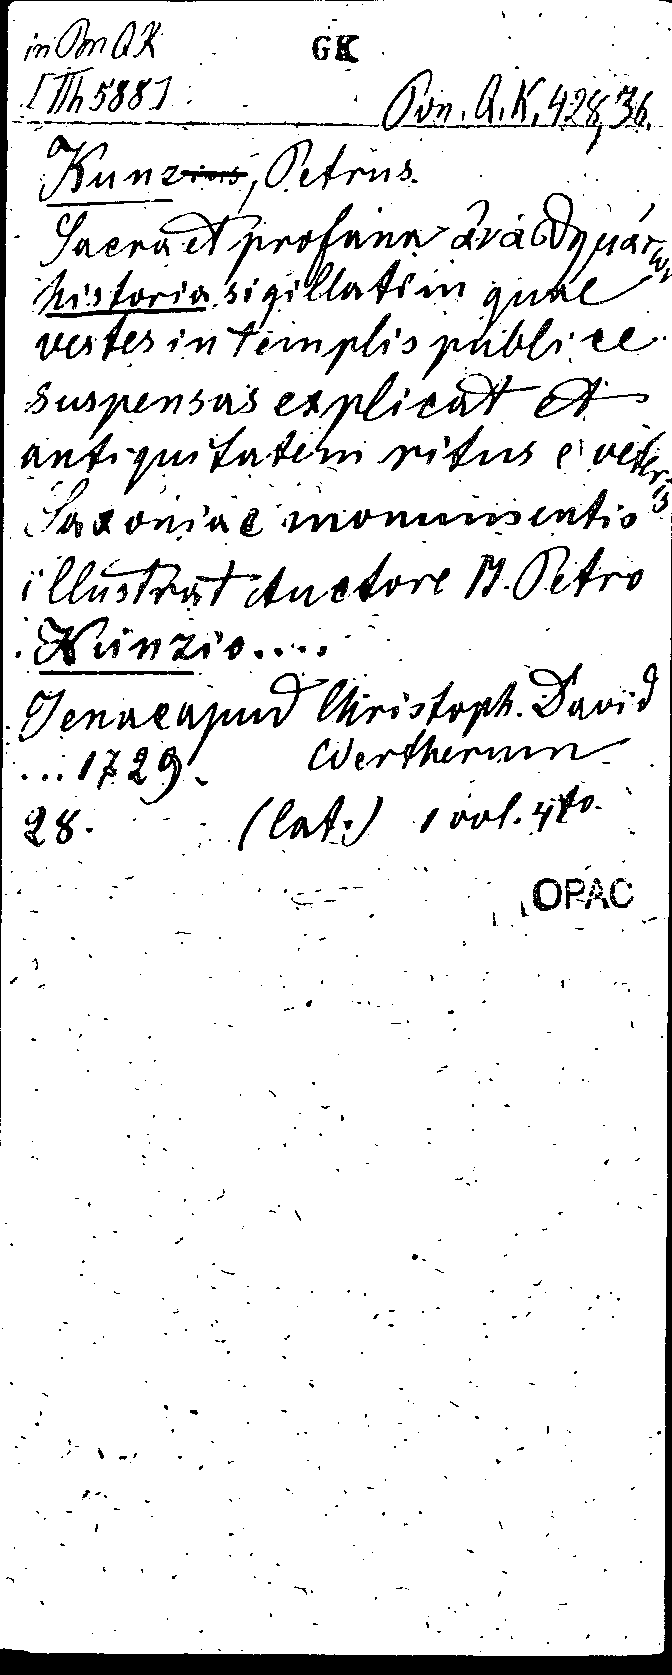 in Pon Q K
GK
[Th 588]
Pon. Q. K. 428, 36.
Kunzius, Petrus.
Sacra et profana ἀναθημάτων
historia sigillatim quae
vestes in templis publice
suspensas explicat et
antiquitatem ritus e veteris
Saxoniae monumentis
illustrat Auctore M. Petro
Kunzio....
Jenae apud Christoph. David
...1729. Wertherum
28. (lat.) 1 vol. 4to.
OPAC